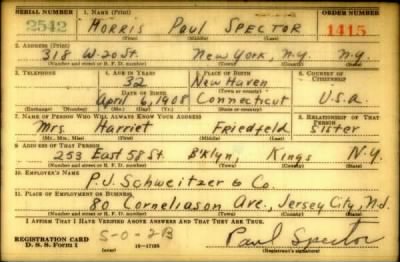 SERIAL NUMBER 1. NAME (Print) ORDER NUMBER
2542 Morris Paul SPECTOR 1415
(First) (Middle) (Last)
2. ADDRESS (Print)
318 W 20 St. New York, N.Y. N.Y.
(Number and street or R. F. D. number) (Town) (County) (State)
3. TELEPHONE 4. AGE IN YEARS 5. PLACE OF BIRTH 6. COUNTRY OF CITIZENSHIP
32 New Haven
DATE OF BIRTH (Town or county)
April 6, 1908 Connecticut U.S.a.
(Exchange) (Number) (Mo.) (Day) (Yr.) (State or country)
7. NAME OF PERSON WHO WILL ALWAYS KNOW YOUR ADDRESS 8. RELATIONSHIP OF THAT PERSON
Mrs. Harriet Friedfeld Sister
(Mr., Mrs., Miss) (First) (Middle) (Last)
9. ADDRESS OF THAT PERSON
253 East 58 St. B'klyn, Kings N.Y.
(Number and street or R. F. D. number) (Town) (County) (State)
10. EMPLOYER'S NAME
P.J. Schweitzer & Co.
11. PLACE OF EMPLOYMENT OR BUSINESS
80 Corneliason Ave., Jersey City, N.J.
(Number and street or R. F. D. number) (Town) (County) (State)
I AFFIRM THAT I HAVE VERIFIED ABOVE ANSWERS AND THAT THEY ARE TRUE.
REGISTRATION CARD 5-0-2B Paul Spector
D. S. S. Form 1 16-17105 (Registrant's signature)